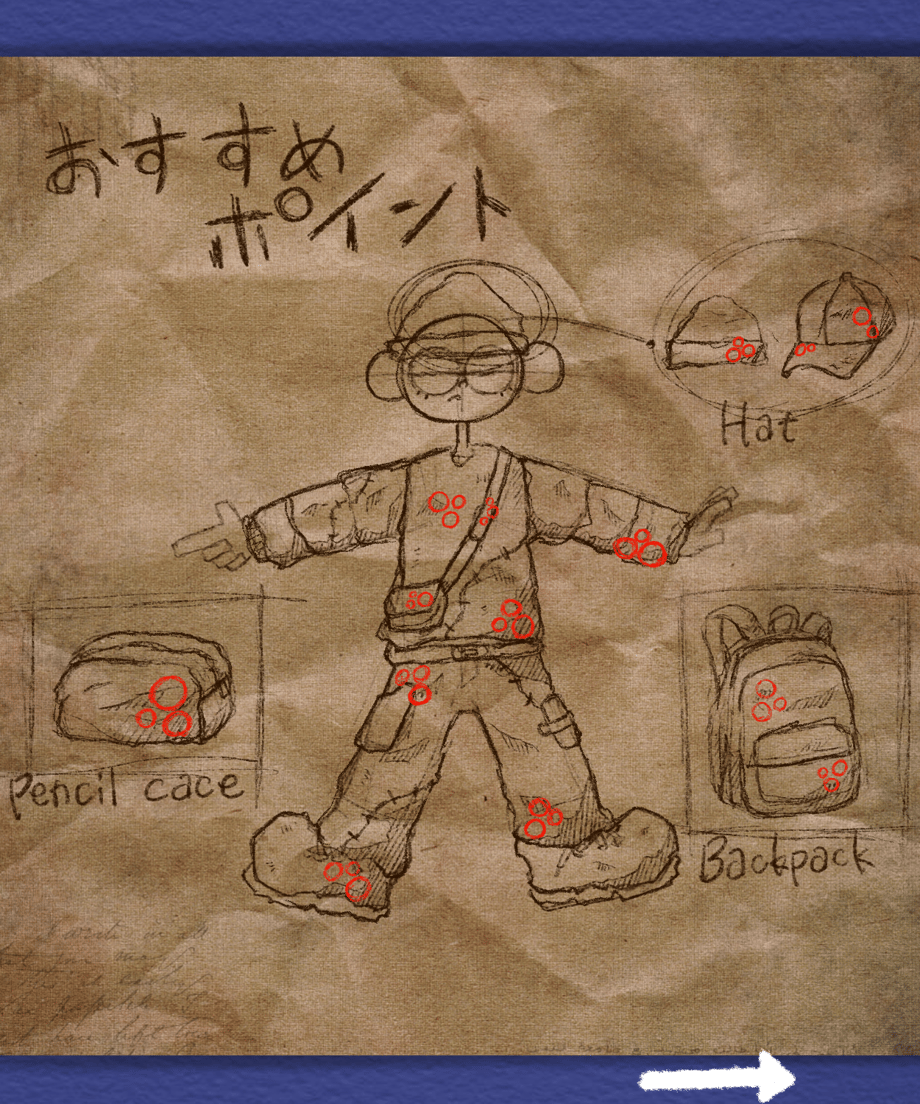 おすすめ
ポイント
Hat
Pencil cace
Backpack